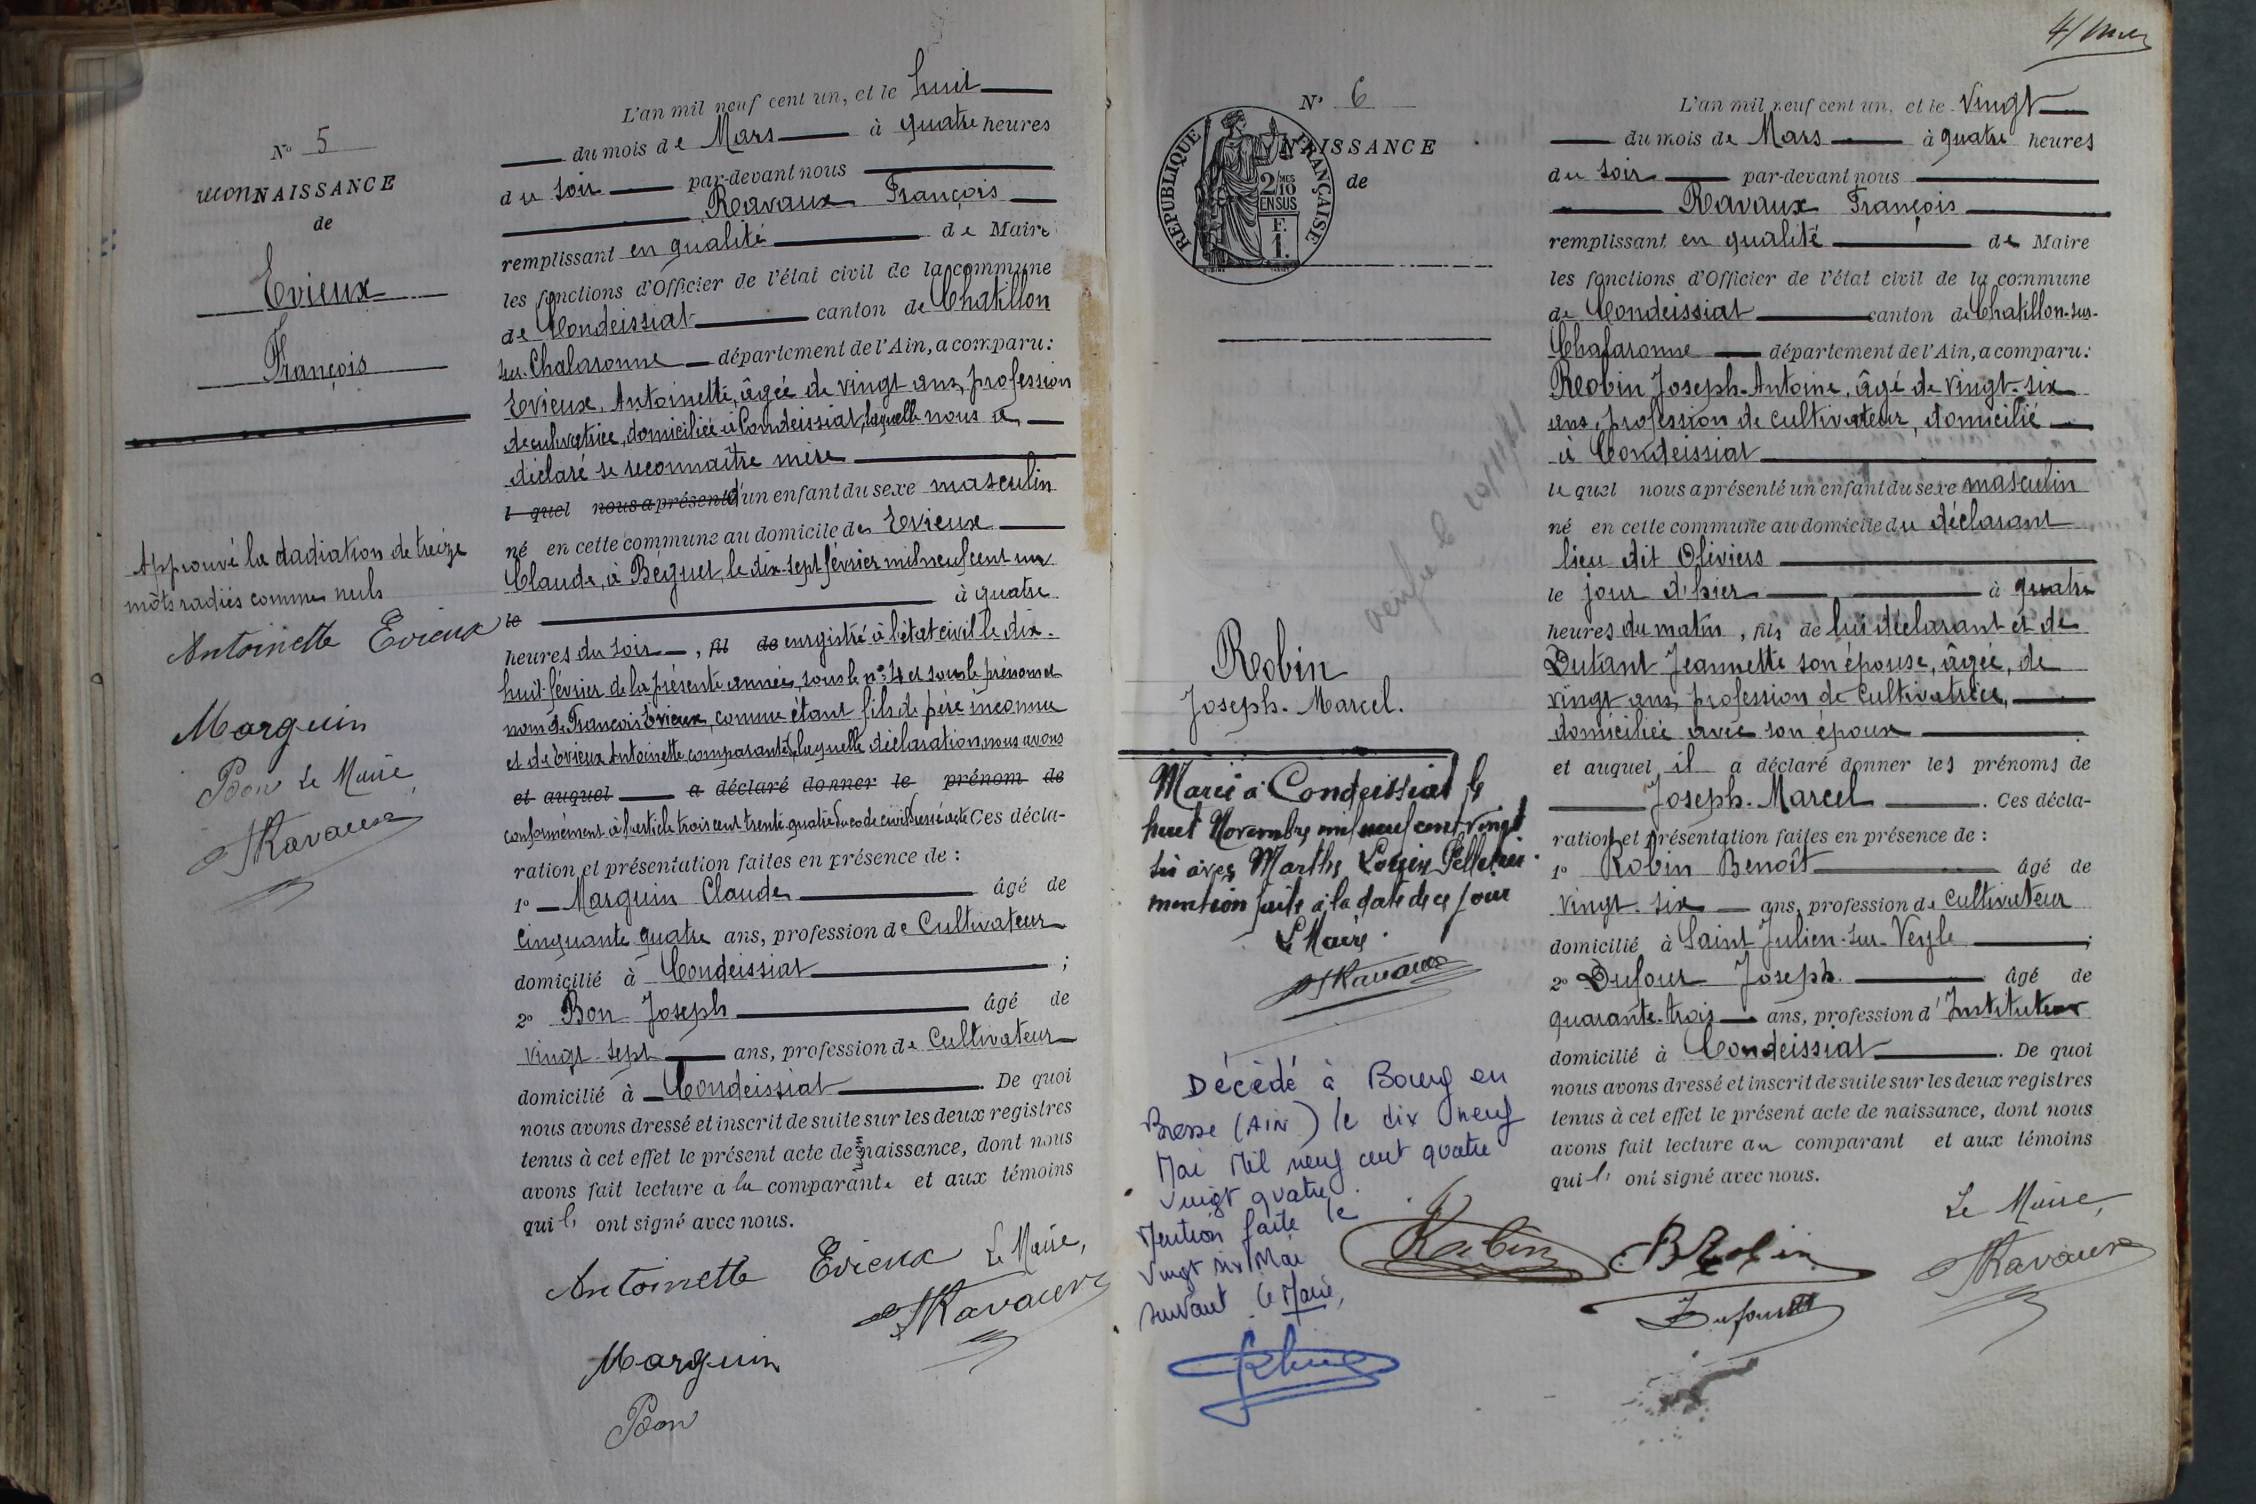 N° 5
reconNAISSANCE
de
Evieux
François
Approuvé la dadiation de treize
mots radiés comme nuls
Antoinette Evieux
Marguin
Bon Le Maire
FRavaux
L'an mil neuf cent un, et le huit
du mois de Mars à quatre heures
du soir par-devant nous
Ravaux François
remplissant en qualité de Maire
les fonctions d'Officier de l'état civil de la commune
de Condeissiat canton de Chatillon
sur-Chalaronne département de l'Ain, a comparu:
Evieux, Antoinette, âgée de vingt ans, profession
de cultivatrice, domiciliée à Condeissiat, laquelle nous a
déclaré se reconnaître mère
l quel nous a présenté d'un enfant du sexe masculin
né en cette commune au domicile de Evieux
Claude, à Béguet, le dix-sept février mil neuf cent un
le à quatre
heures du soir, fil de enregistré à l'état civil le dix-
huit février de la présente année, sous le n° 4 et sous le prénom et
nom de François Evieux, comme étant fils de père inconnu
et de Evieux Antoinette comparante, laquelle déclaration, nous avons
et auquel a déclaré donner le prénom de
conformément à l'article trois cent trente-quatre du code civil dressé acte Ces décla-
ration et présentation faites en présence de :
1° Marguin Claude âgé de
cinquante quatre ans, profession de Cultivateur
domicilié à Condeissiat ;
2° Bon Joseph âgé de
vingt-sept ans, profession de Cultivateur
domicilié à Condeissiat. De quoi
nous avons dressé et inscrit de suite sur les deux registres
tenus à cet effet le présent acte de naissance, dont nous
avons fait lecture à la comparante et aux témoins
qui ont signé avec nous.
Antoinette Evieux Le Maire,
FRavaux
Marguin
Bon
4/
N° 6
NAISSANCE
de
RÉPUBLIQUE FRANÇAISE
2/MES
10
EN SUS
F.
1.
Robin
Joseph-Marcel.
Marié à Condeissiat le
huit Novembre mil neuf cent vingt
six avec Marthe Louise Pelletier
mention faite à la date de ce jour
Le Maire.
FRavaux
Décédé à Bourg en
Bresse (AIN) le dix neuf
Mai Mil neuf cent quatre
vingt quatre.
Mention faite le
vingt six Mai
suivant. Le Maire,
L'an mil neuf cent un, et le vingt
du mois de Mars à quatre heures
du soir par-devant nous
Ravaux François
remplissant en qualité de Maire
les fonctions d'Officier de l'état civil de la commune
de Condeissiat canton de Chatillon-sur-
Chalaronne département de l'Ain, a comparu:
Robin Joseph-Antoine, âgé de vingt-six
ans, profession de cultivateur, domicilié
à Condeissiat
le quel nous a présenté un enfant du sexe masculin
né en cette commune au domicile du déclarant
lieu dit Oliviers
le jour d'hier à quatre
heures du matin, fils de lui déclarant et de
Dutant Jeannette son épouse, âgée, de
vingt ans, profession de Cultivatrice,
domiciliée avec son époux
et auquel il a déclaré donner les prénoms de
Joseph-Marcel. Ces décla-
ration et présentation faites en présence de :
1° Robin Benoît âgé de
vingt-six ans, profession de Cultivateur
domicilié à Saint Julien-sur-Veyle ;
2° Dufour Joseph âgé de
quarante-trois ans, profession d'Instituteur
domicilié à Condeissiat. De quoi
nous avons dressé et inscrit de suite sur les deux registres
tenus à cet effet le présent acte de naissance, dont nous
avons fait lecture au comparant et aux témoins
qui ont signé avec nous.
Le Maire,
Robin BRobin FRavaux
Dufour